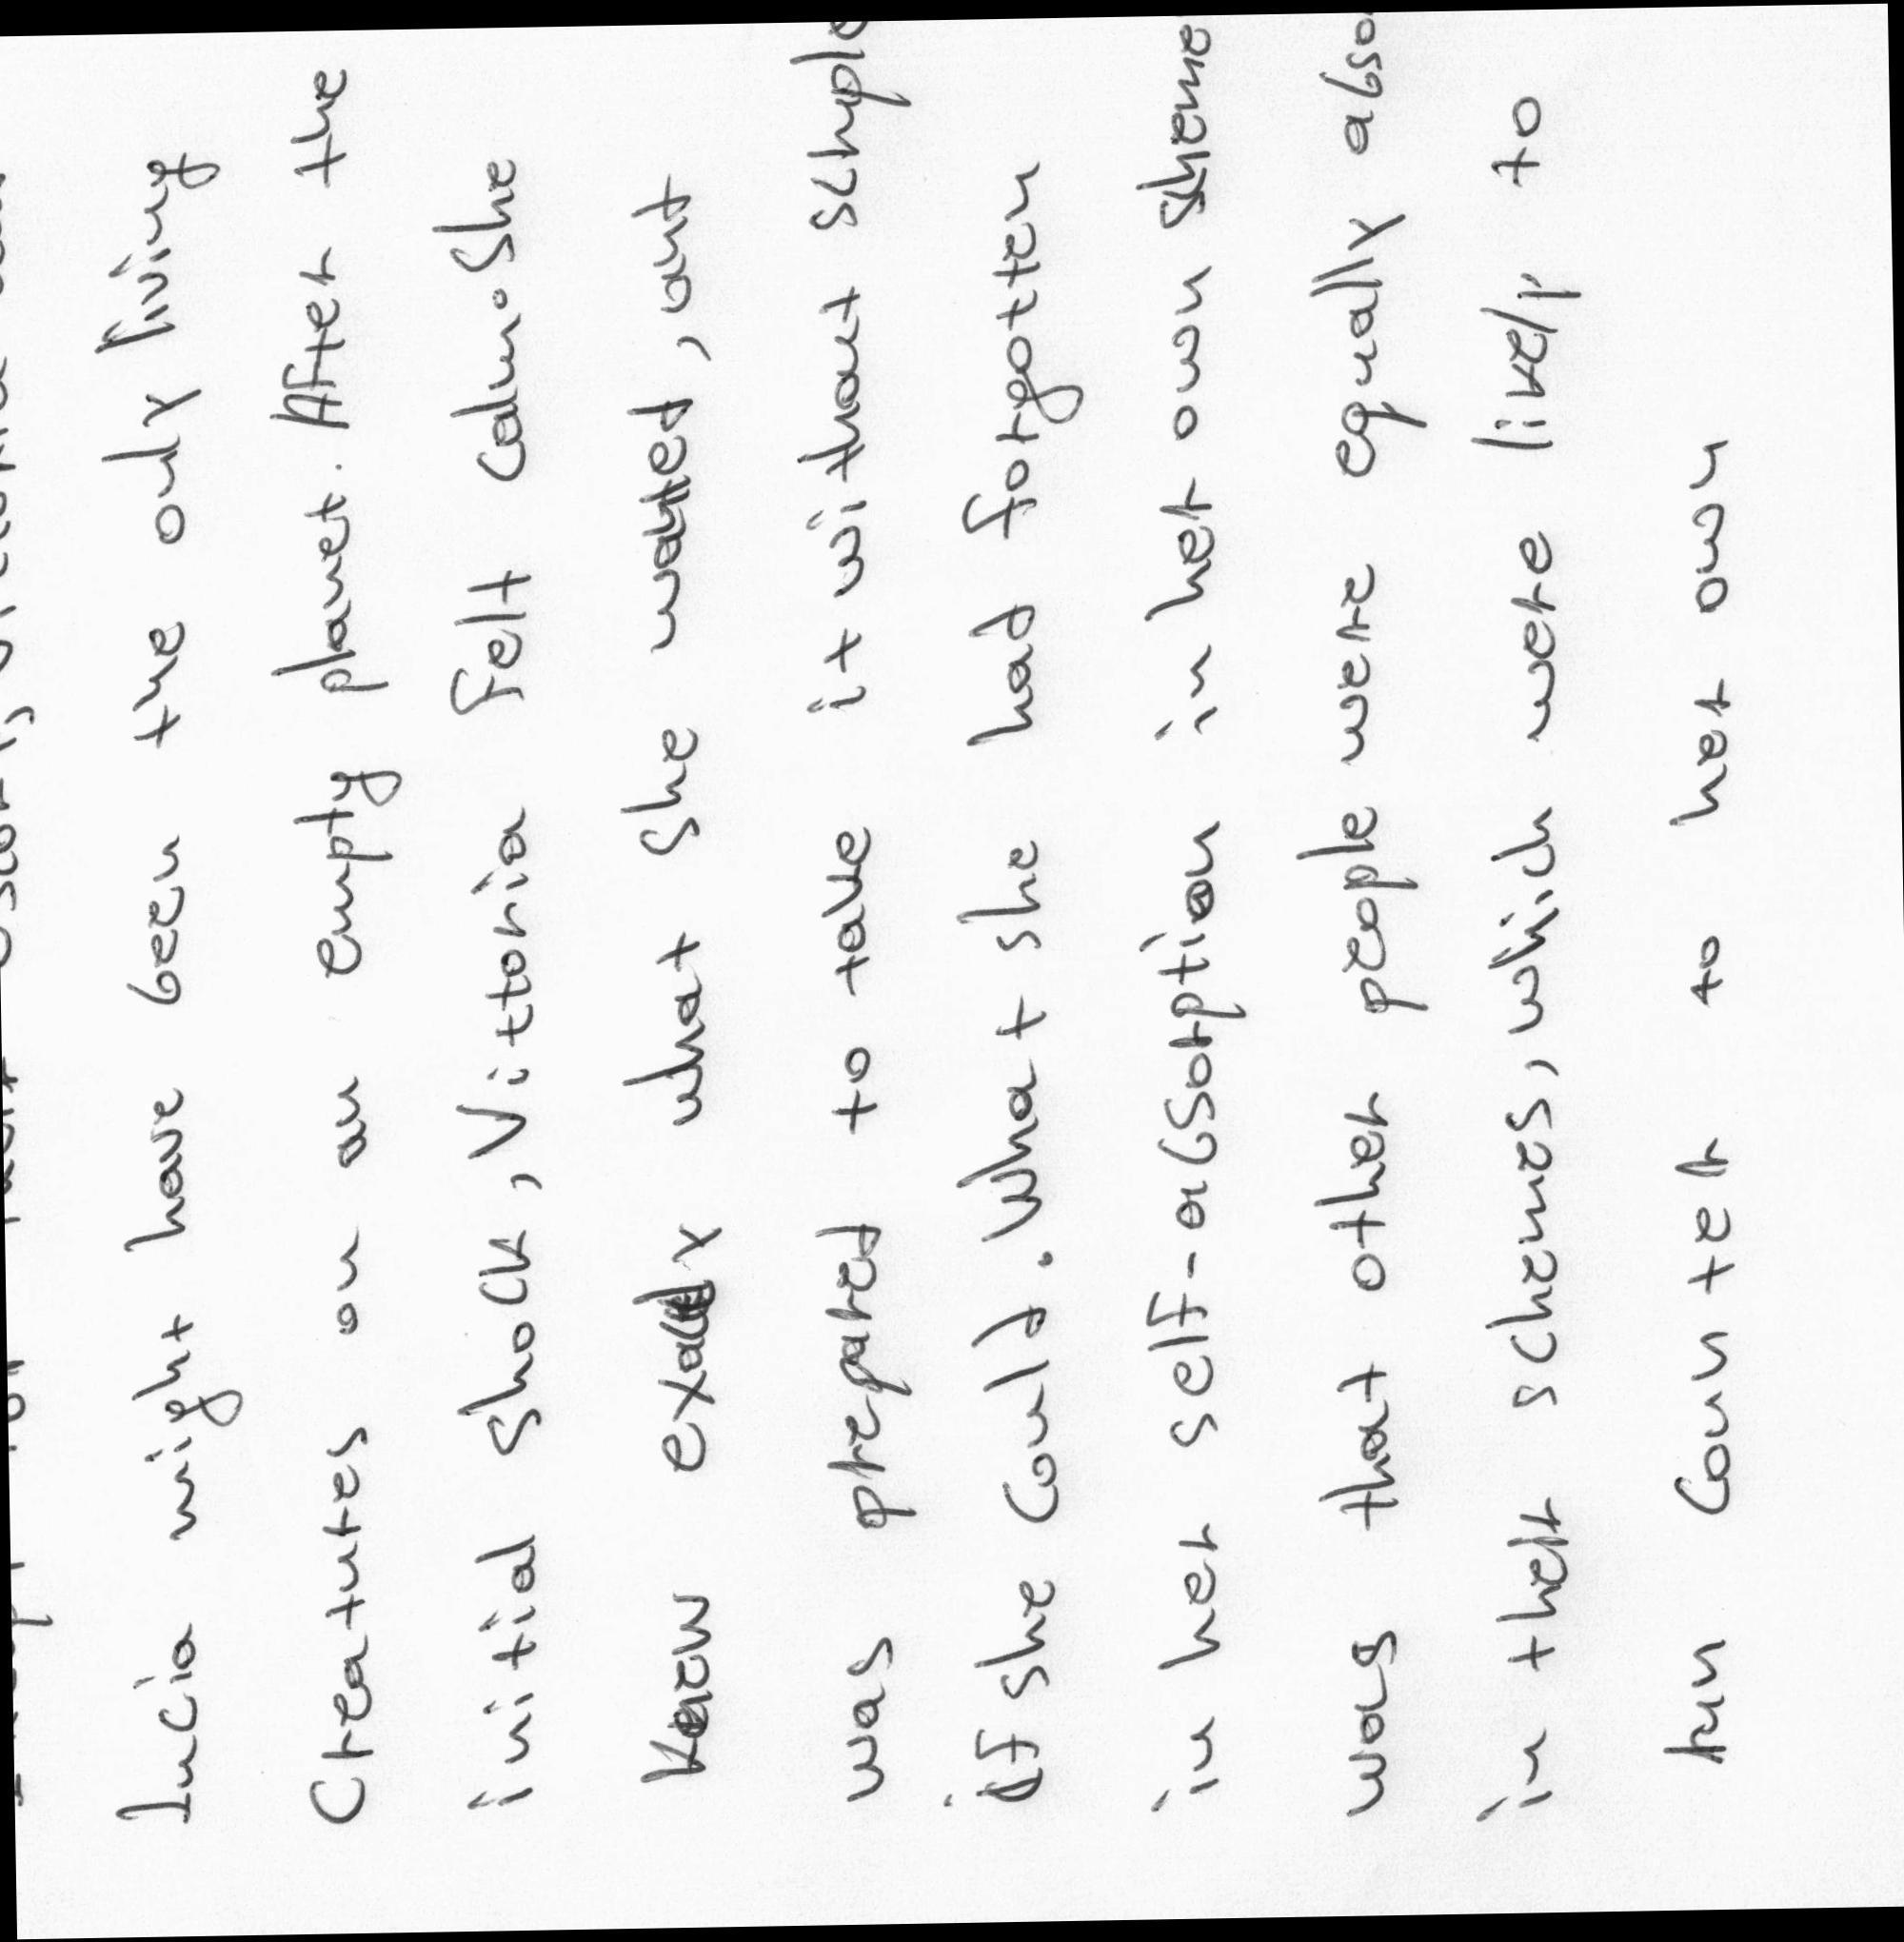 Lucia might have been the only living
Creatures on an empty planet. After the
initial shock, Vittoria felt calm. She
knew exactly what she wanted, and
was prepared to take it without scruple
if she could. What she had forgotten
in her self-absorption in her own scheme
was that other people were equally abso
in their schemes, which were likely to
run counter to her own